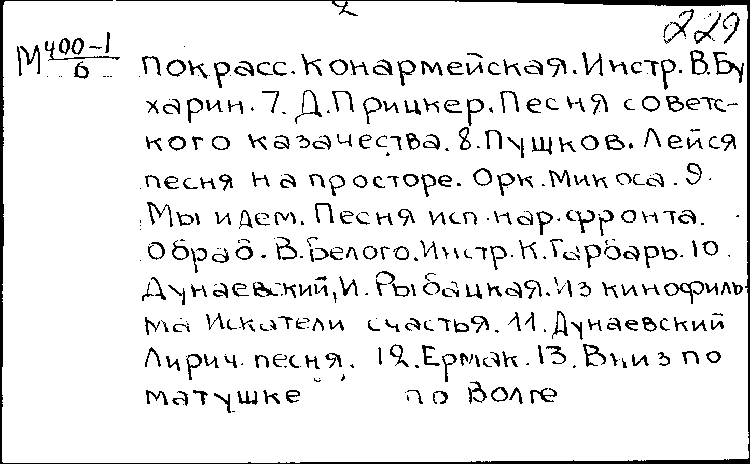 2
229
М 400-1/6
Покрасс. Конармейская. Инстр. В. Бу
харин. 7. Д. Прицкер. Песня советс-
кого казачества. 8. Пушков. Лейся
песня на просторе. Орк. Микоса. 9.
Мы идем. Песня исп. нар. фронта.
Обраб. В. Белого. Инстр. К. Гарбарь. 10.
Дунаевский, И. Рыбацкая. Из кинофиль-
ма Искатели счастья. 11. Дунаевский
Лирич. песня. 12. Ермак. 13. Вниз по
матушке по Волге